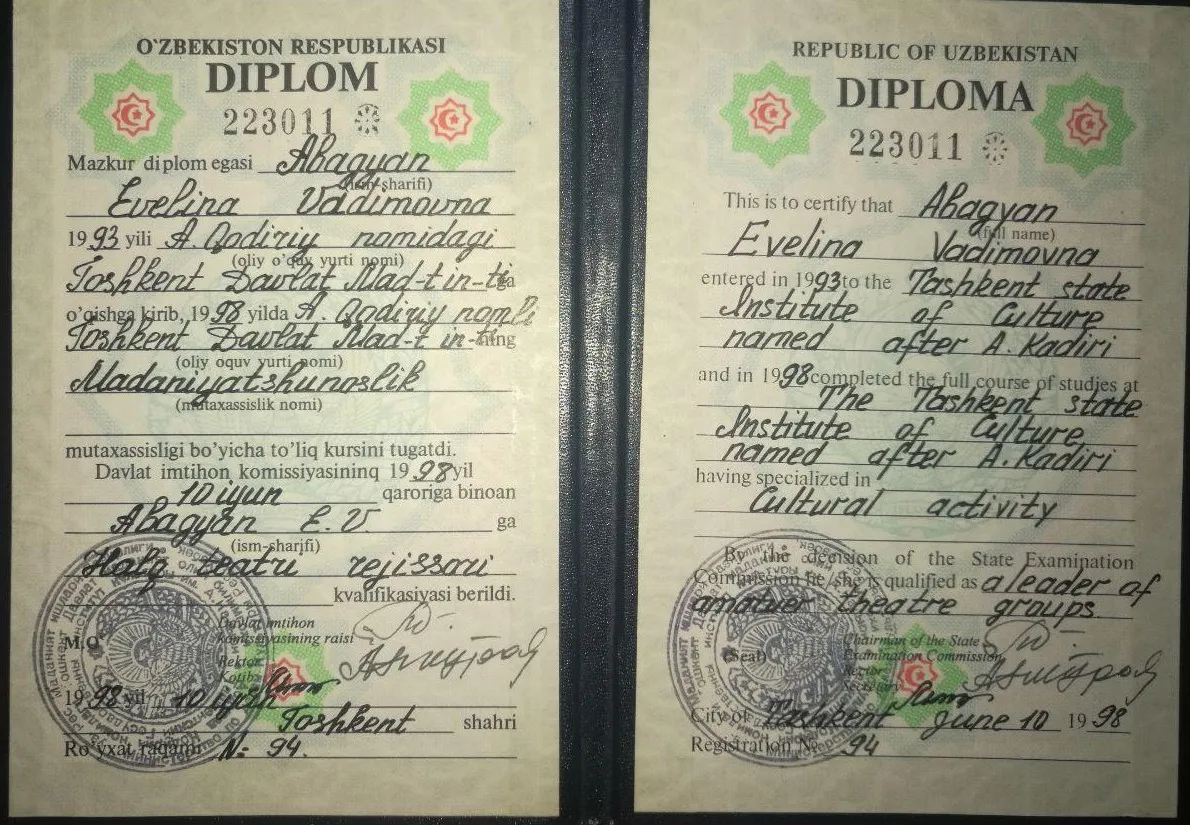 O'ZBEKISTON RESPUBLIKASI
DIPLOM
223011
Mazkur diplom egasi Abagyan
(ism-sharifi)
Evelina Vadimovna
1993 yili A. Qodiriy nomidagi
(oliy o'quv yurti nomi)
Toshkent Davlat Mad-t in-tiga
o'qishga kirib, 1998 yilda A. Qodiriy nomli
Toshkent Davlat Mad-t in-ning
(oliy oquv yurti nomi)
Madaniyatshunoslik
(mutaxassislik nomi)
mutaxassisligi bo'yicha to'liq kursini tugatdi.
Davlat imtihon komissiyasining 1998 yil
10 iyun qaroriga binoan
Abagyan E. V ga
(ism-sharifi)
Halq teatri rejissori
kvalifikasiyasi berildi.
M.O'.
Davlat imtihon
komissiyasining raisi
Rektor
Kotiba
1998 yil 10 iyun
Toshkent shahri
Ro'yxat raqami № 94.
REPUBLIC OF UZBEKISTAN
DIPLOMA
223011
This is to certify that Abagyan
(full name)
Evelina Vadimovna
entered in 1993 to the Tashkent state
Institute of Culture
named after A. Kadiri
and in 1998 completed the full course of studies at
The Tashkent state
Institute of Culture
named after A. Kadiri
having specialized in
Cultural activity
By the decision of the State Examination
Commission he/she is qualified as a leader of
amatuer theatre groups.
(Seal)
Chairman of the State
Examination Commission
Rector
Secretary
City of Tashkent June 10 1998
Registration № 94